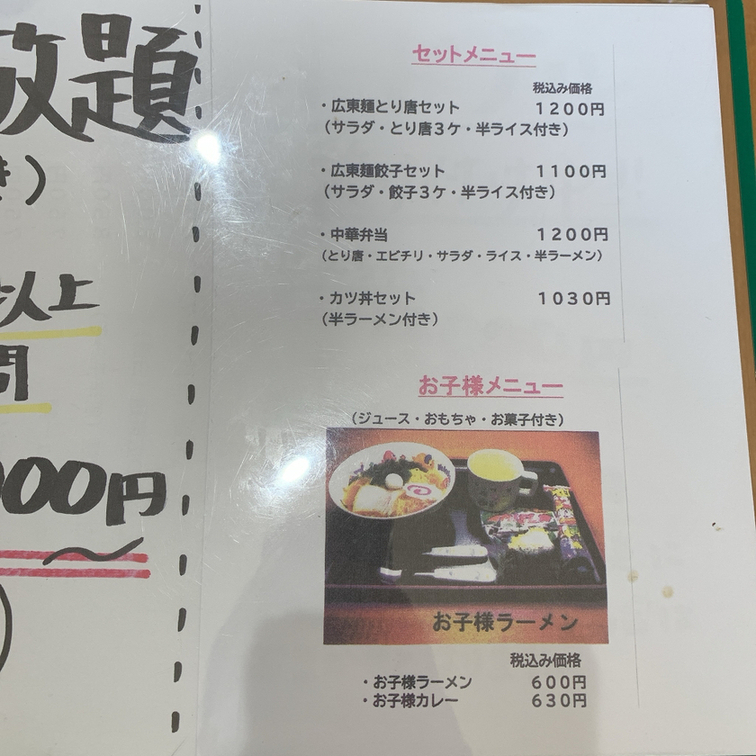 放題
き)
以上
間
000円
セットメニュー
税込み価格
・広東麺とり唐セット 1200円
(サラダ・とり唐3ケ・半ライス付き)
・広東麺餃子セット 1100円
(サラダ・餃子3ケ・半ライス付き)
・中華弁当 1200円
(とり唐・エビチリ・サラダ・ライス・半ラーメン)
・カツ丼セット 1030円
(半ラーメン付き)
お子様メニュー
(ジュース・おもちゃ・お菓子付き)
お子様ラーメン
税込み価格
・お子様ラーメン 600円
・お子様カレー 630円